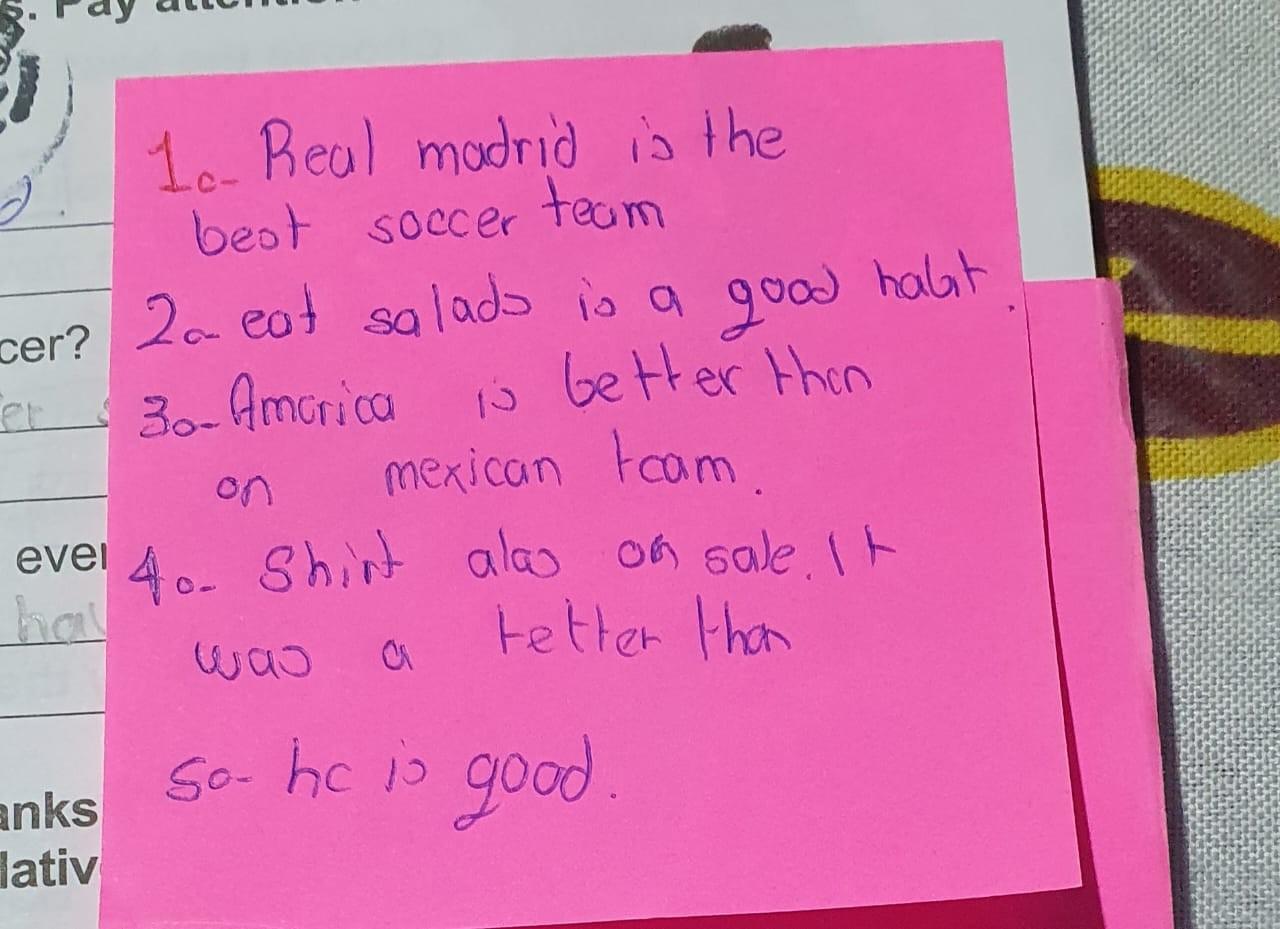 s. Pay attention
1.- Real madrid is the
best soccer team
2.- eat salads is a good habit.
cer?
er s
3.- America is better than
on mexican team.
ever
4.- Shirt alas on sale. It
hav
was a tetter than
5.- he is good.
anks
lativ